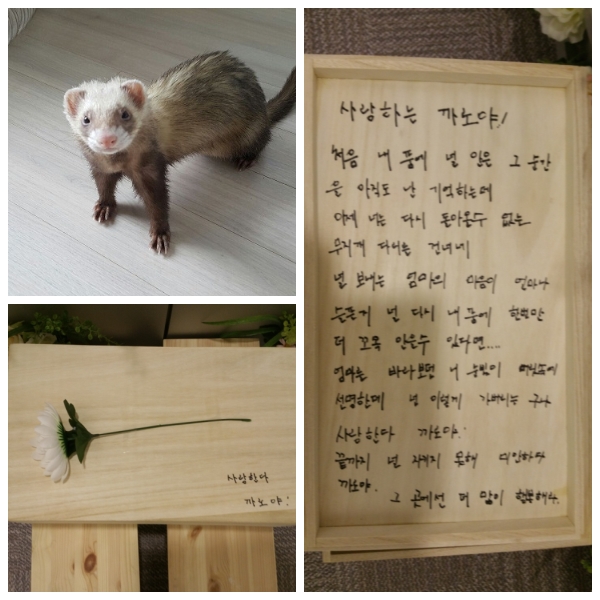 사랑하는 까노야!
처음 내 품에 널 안은 그 순간
은 아직도 난 기억하는데
이제 너는 다시 돌아올수 없는
무지개 다리를 건너네
널 보내는 엄마의 마음이 얼마나
슬픈지 널 다시 내 품에 한번만
더 꼬옥 안을수 있다면...
엄마를 바라보던 네 눈빛이
선명한데 넌 이렇게 가버리는 구나
사랑한다 까노야.
끝까지 널 지키지 못해 미안하다
까노야. 그 곳에선 더 많이 행복해라.
사랑한다
까노야!